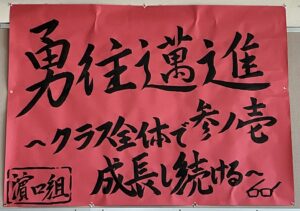 勇往邁進
～クラス全体で参ノ壱
成長し続ける～
濵口組